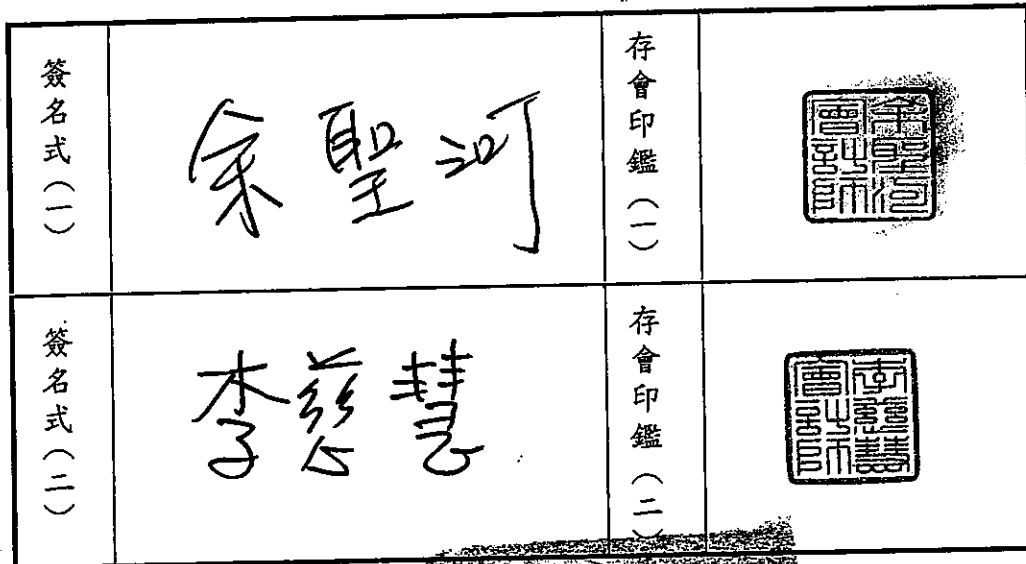 簽名式（一）
余聖河
存會印鑑（一）
余聖河
會計師
簽名式（二）
李慈慧
存會印鑑（二）
李慈慧
會計師